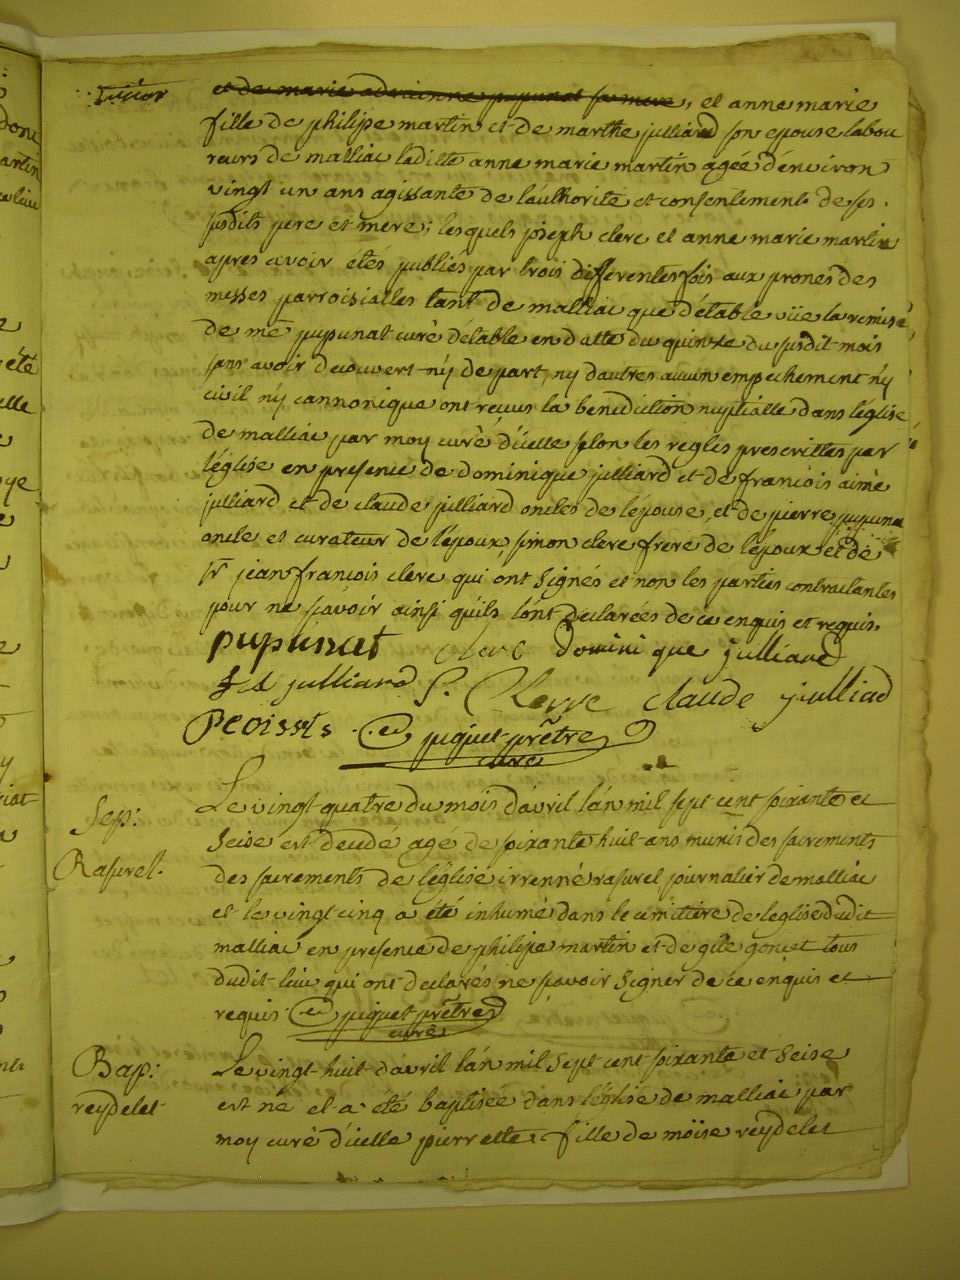 et de marie adrienne pupunat sa mere, et anne marie
fille de philipe martin et de marthe julliard son epouse labou
reurs de malliac laditte anne marie martin agée d'environ
vingt un ans agissante de l'authorite et consentement de ses
susdits pere et mere; lesquels joseph clerc et anne marie martin
apres avoir étés publiés par trois differentes fois aux prones des
messes parroisialles tant de malliac que d'étable vüe la remise
de mre pupunat curé détable en datte du quinze du susdit mois
sans avoir decouvert ny de part, ny d'autres aucun empechement ny
civil ny cannonique ont reçus la benediction nuptialle dans l'église
de malliac par moy curé d'icelle selon les regles prescrittes par
l'église en presence de dominique julliard et de francois aimé
julliard et de claude julliard oncles de l'épouse, et de pierre pupuna
oncle et curateur de l'époux, simon clerc frere de l'époux et de
sr jean francois clerc qui ont signés et non les parties contractantes
pour ne sçavoir ainsi qu'ils l'ont declarées de ce enquis et requis.
pupunat clerc Domini que julliard
f a julliard S. Clerc claude julliad
piquet prêtre
curé
Sep:
Rasurel.
Le vingt quatre du mois d'avril l'an mil sept cent soixante et
seise est decedé agé de soixante huit ans munis des sacrements
des sacrements de l'église irrenné rasurel journalier de malliac
et le vingt cinq a été inhumé dans le cimitiere de leglise dudit
malliac en presence de philipe martin et de gille goncet tous
dudit lieu qui ont declarés ne sçavoir signer de ce enquis et
requis piquet prêtre
curé
Bap:
reydelet
Le vingt huit d'avril l'an mil sept cent soixante et seise
est né et a été baptisée dans l'église de malliac par
moy curé d'icelle pierrette fille de moïse reydelet